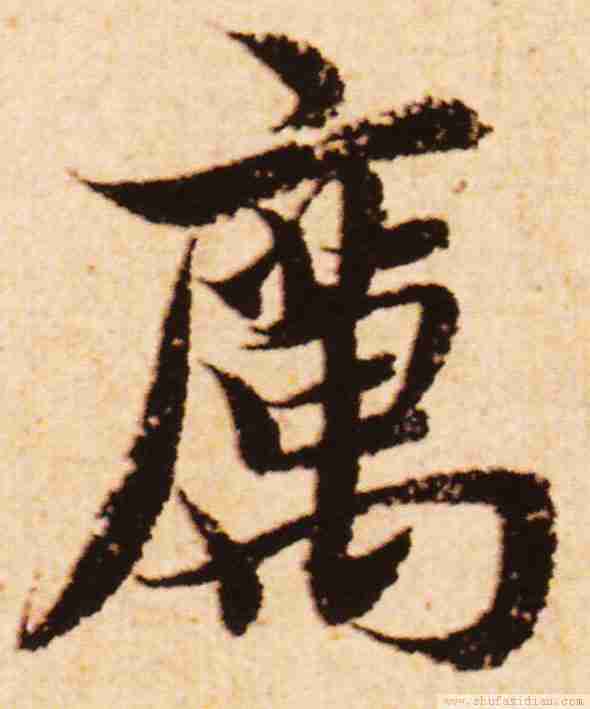 厲
www.shufazidian.com